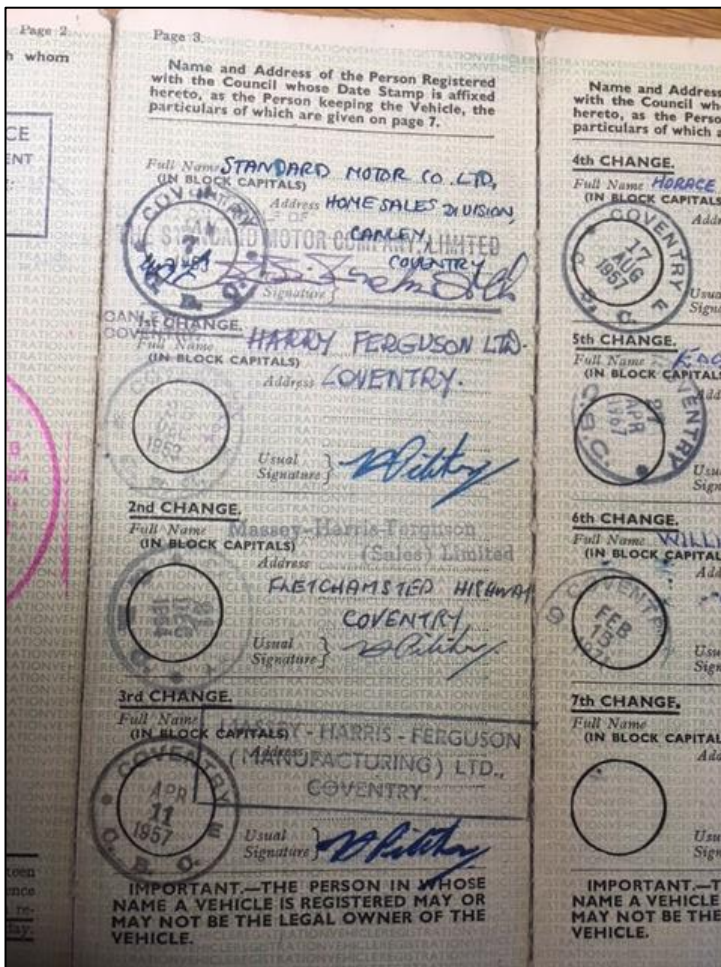 Page 2
h whom
CE
ENT
Page 3.
Name and Address of the Person Registered
with the Council whose Date Stamp is affixed
hereto, as the Person keeping the Vehicle, the
particulars of which are given on page 7.
Full Name STANDARD MOTOR CO. LTD,
(IN BLOCK CAPITALS)
Address HOME SALES DIVISION,
CANLEY,
COVENTRY
THE STANDARD MOTOR COMPANY, LIMITED
COVENTRY
C.B.C.
Signature
CANLEY
COVENTRY
1st CHANGE.
Full Name HARRY FERGUSON LTD.
(IN BLOCK CAPITALS)
Address COVENTRY.
1953
Usual
Signature
2nd CHANGE.
Full Name Massey-Harris-Ferguson
(IN BLOCK CAPITALS) (Sales) Limited
Address
FLETCHAMSTED HIGHWAY
COVENTRY
Usual
Signature
3rd CHANGE.
Full Name MASSEY-HARRIS-FERGUSON
(IN BLOCK CAPITALS)
Address (MANUFACTURING) LTD.,
COVENTRY.
COVENTRY E
APR
11
1957
C.B.C.
Usual
Signature
IMPORTANT.—THE PERSON IN WHOSE
NAME A VEHICLE IS REGISTERED MAY OR
MAY NOT BE THE LEGAL OWNER OF THE
VEHICLE.
Name and Address
with the Council wh
hereto, as the Perso
particulars of which a
4th CHANGE.
Full Name HORACE
(IN BLOCK CAPITALS
Addr
COVENTRY E
17
AUG
1957
C.B.C.
Usual
Signa
5th CHANGE.
Full Name
(IN BLOCK CAPITALS
Add
COVENTRY
APR
1967
C.B.C.
Usual
Sign
6th CHANGE.
Full Name WILLI
(IN BLOCK CAPITAL
Add
COVENTRY
FEB
15
Usu
Sign
7th CHANGE.
Full Name
(IN BLOCK CAPITAL
Add
Usu
Sign
IMPORTANT.—T
NAME A VEHICLE
MAY NOT BE THE
VEHICLE.